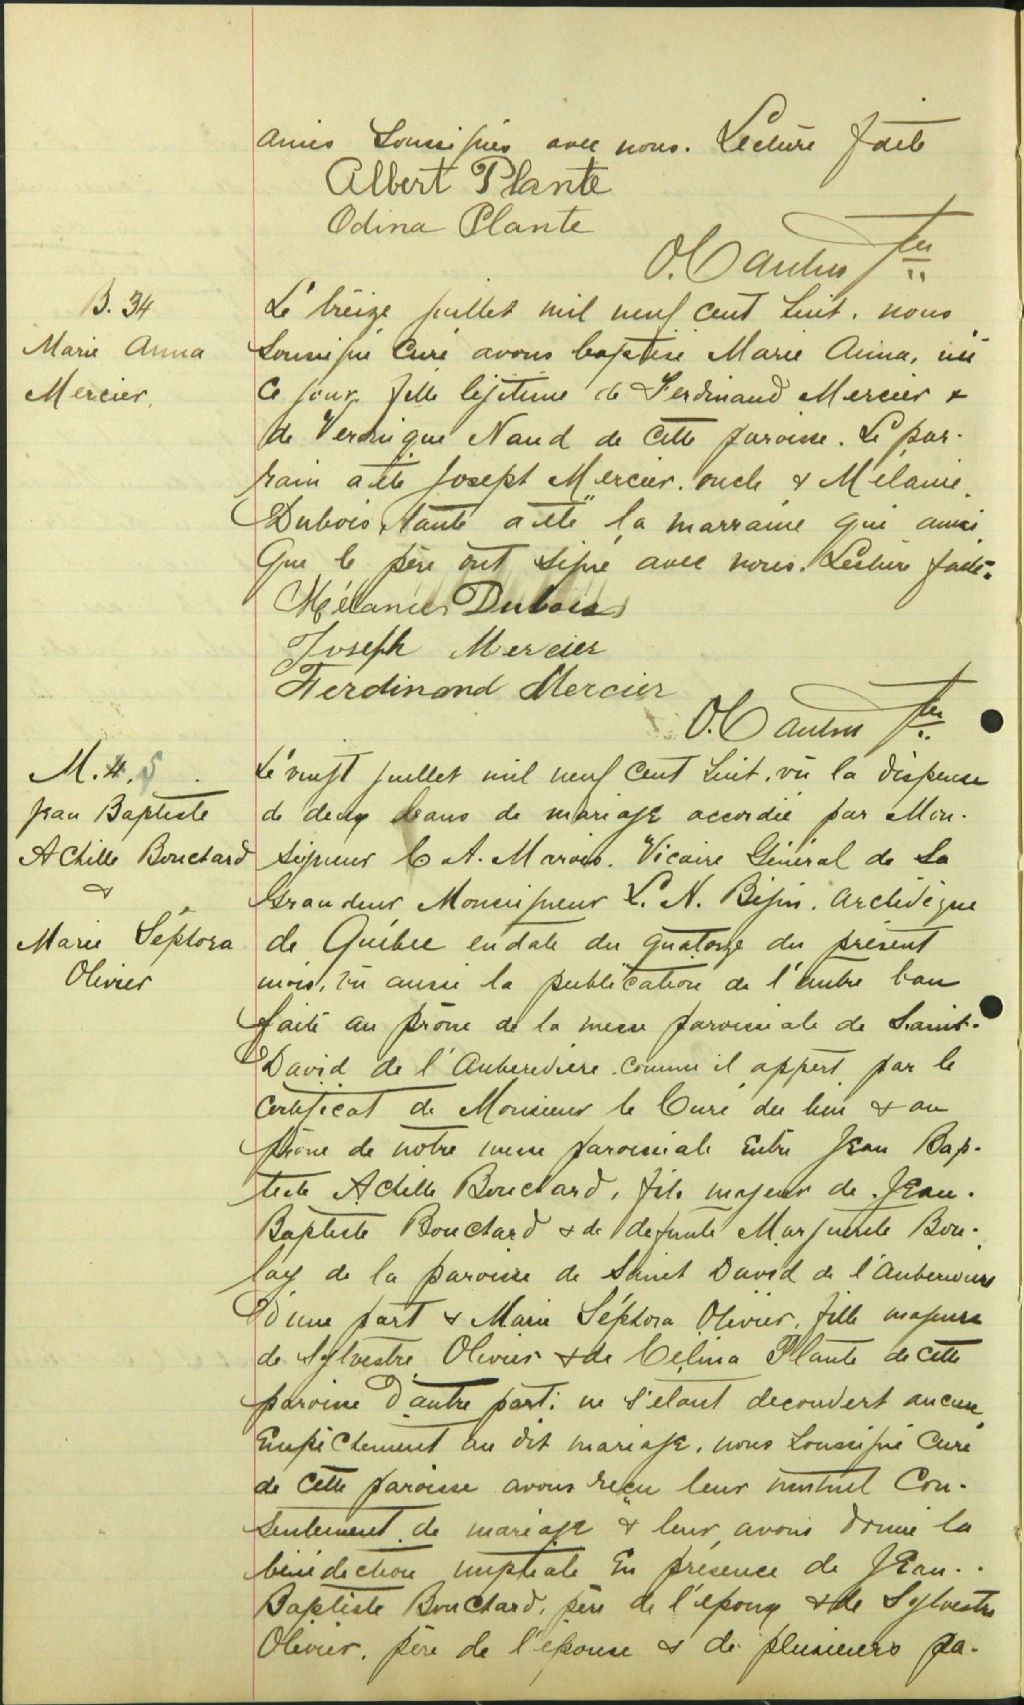 amis soussignés avec nous. Lecture faite
Albert Plante
Odina Plante
O. Cantin Ptre
B. 34
Marie Anna
Mercier.
Le treize juillet mil neuf cent huit, nous
soussigné Curé avons baptisé Marie Anna, née
ce jour, fille légitime de Ferdinand Mercier &
de Veronique Naud de cette paroisse. Le par-
rain a été Joseph Mercier, oncle & Mélanie
Dubois, tante a été la marraine qui ainsi
que le père ont signé avec nous. Lecture faite.
Mélanie Dubois
Joseph Mercier
Ferdinand Mercier
O. Cantin Ptre
M. 4. 5
Jean Baptiste
Achille Bouchard
&
Marie Séphora
Olivier
Le vingt juillet mil neuf cent huit, vu la dispense
de deux bans de mariage accordée par Mon-
seigneur C. A. Marois, Vicaire Général de Sa
Grandeur Monseigneur L. N. Bégin, archévêque
de Québec en date du quatorze du présent
mois, vu aussi la publication de l'autre ban
faite au prône de la messe paroissiale de Saint-
David de l'Auberivière comme il appert par le
certificat de Monsieur le Curé du lieu & au
prône de notre messe paroissiale entre Jean Bap-
tiste Achille Bouchard, fils majeur de Jean-
Baptiste Bouchard & de defunte Marguerite Bou-
lay de la paroisse de Saint David de l'Auberivière
d'une part & Marie Séphora Olivier, fille majeure
de Sylvestre Olivier & de Célina Plante de cette
paroisse d'autre part; ne s'étant decouvert aucun
empêchement au dit mariage, nous soussigné Curé
de cette paroisse avons reçu leur mutuel con-
sentement de mariage & leur avons donné la
bénédiction nuptiale en présence de Jean-
Baptiste Bouchard, père de l'époux & de Sylvestre
Olivier, père de l'épouse & de plusieurs pa-